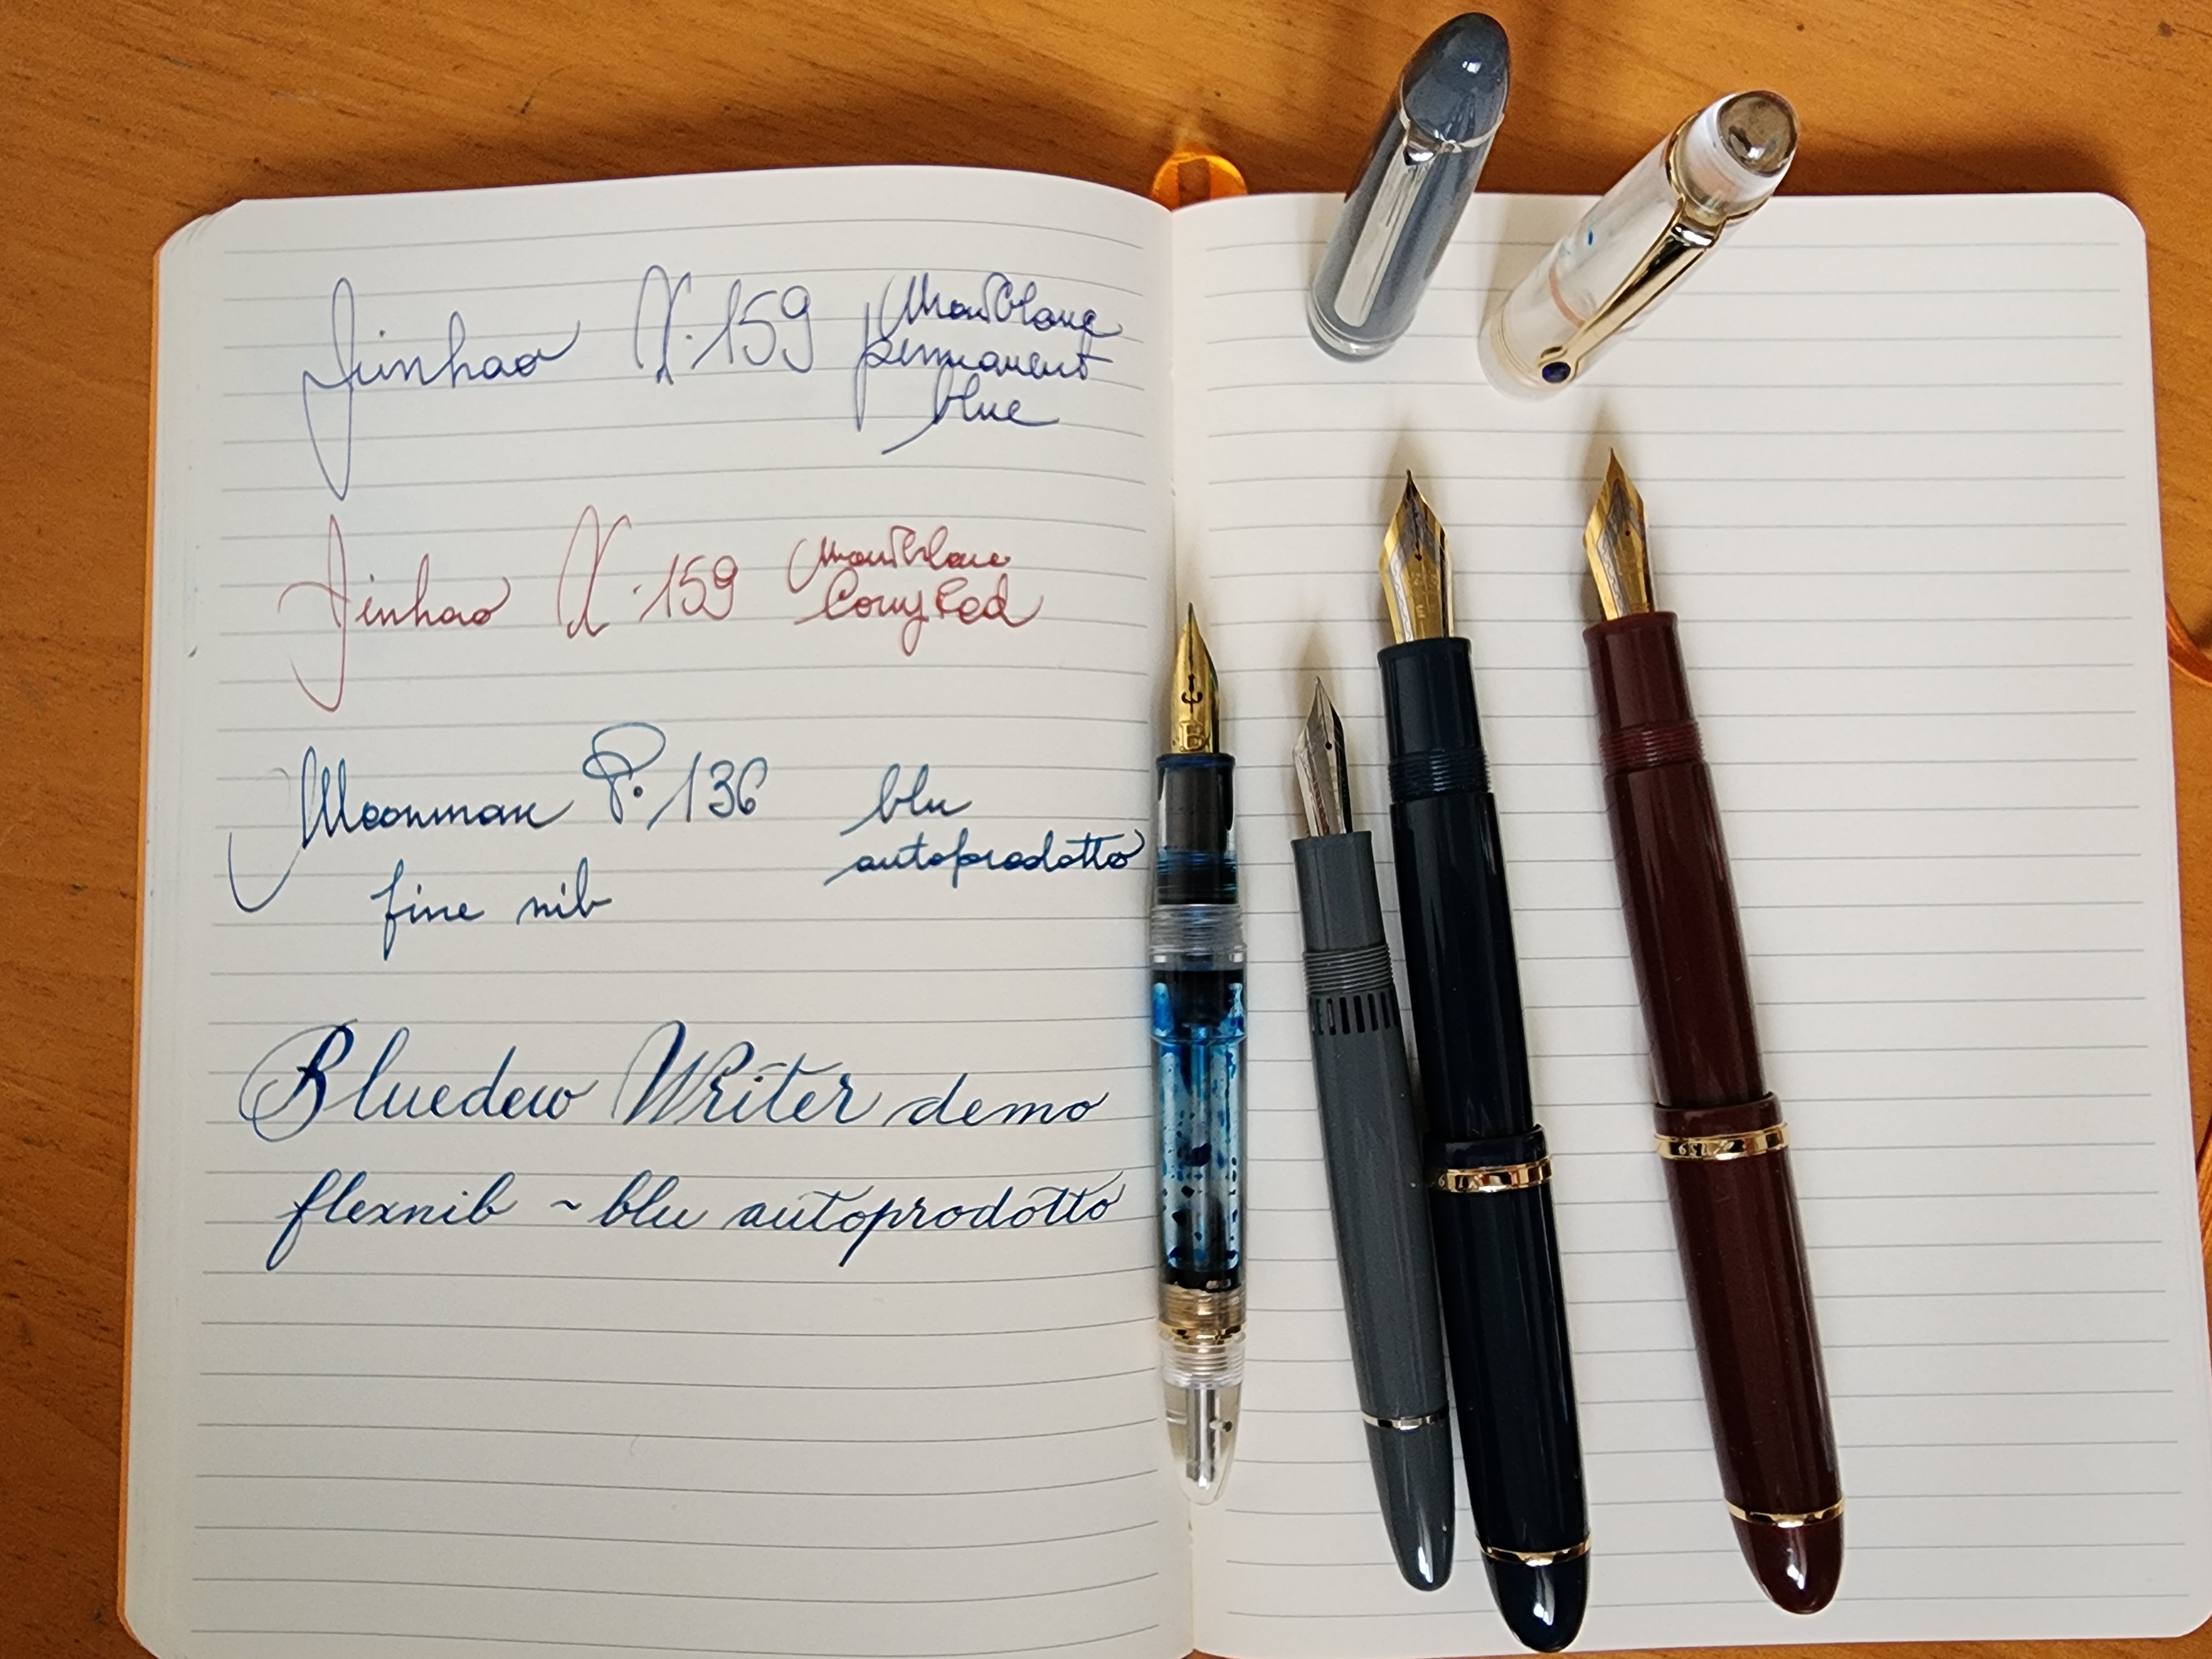 Jinhao X.159 Montblanc
permanent
blue
Jinhao X.159 Montblanc
Corn Red
Moonman P.136 blu
autoprodotto
fine nib
Bluedew Writer demo
flexnib ~ blu autoprodotto